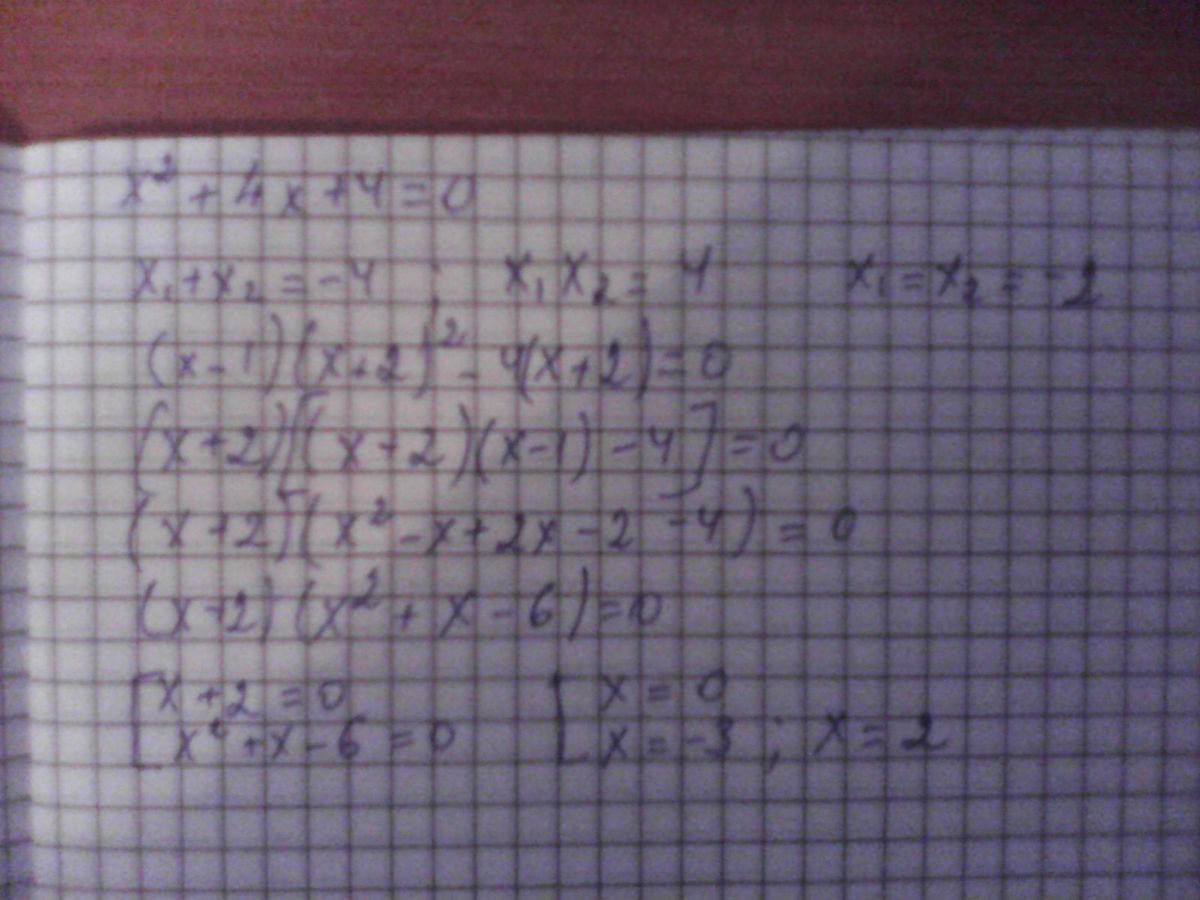 x² + 4x + 4 = 0
x₁ + x₂ = -4 ; x₁ x₂ = 4 x₁ = x₂ = -2
(x - 1)(x + 2)² - 4(x + 2) = 0
(x + 2)[(x + 2)(x - 1) - 4] = 0
(x + 2)(x² - x + 2x - 2 - 4) = 0
(x + 2)(x² + x - 6) = 0
[x + 2 = 0 [x = 0
x² + x - 6 = 0 x = -3 ; x = 2